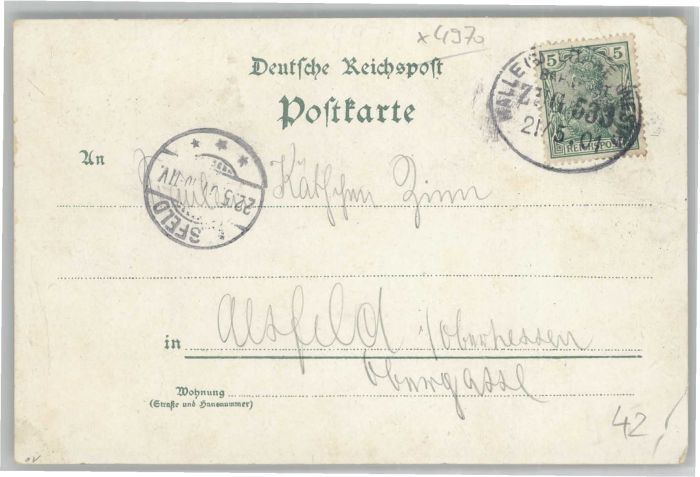 x4970
Deutsche Reichspost
Postkarte
HALLE
ZUG 533
21/5 01
5 5
REICHSPOST
An Käthchen Zinn
SFELD
22.5.01
in Alsfeld i/Oberhessen
Obergasse
Wohnung
(Straße und Hausnummer)
42